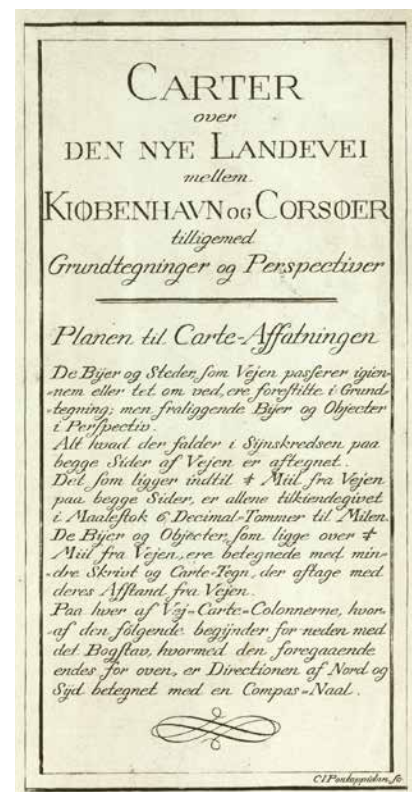 CARTER
over
DEN NYE LANDEVEI
mellem
KIØBENHAVN OG CORSØER
tilligemed
Grundtegninger og Perspectiver
Planen til Carte-Affatningen
De Bÿer og Steder, som Vejen passerer igien-
-nem eller tet om ved, ere forestilte i Grund-
tegning; men fraliggende Bÿer og Objecter
i Perspectiv.
Alt hvad der falder i Sÿnskredsen paa
begge Sider af Vejen er aftegnet.
Det som ligger indtil ¼ Miil fra Vejen
paa begge Sider, er allene tilkiendegivet
i Maalestok 6 Decimal-Tommer til Milen.
De Bÿer og Objecter, som ligge over ¼
Miil fra Vejen, ere betegnede med min-
-dre Skrivt og Carte-Tegn, der aftage med
deres Afstand fra Vejen.
Paa hver af Vej-Carte-Colonnerne, hvor-
af den følgende begÿnder for neden med
det Bogstav, hvormed den foregaaende
endes for oven, er Directionen af Nord og
Sÿd betegnet med en Compas-Naal.